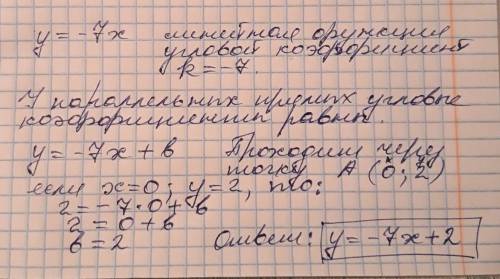 y = -7x линейная функция
угловой коэффициент
k = -7.
У параллельных прямых угловые
коэффициенты равны.
y = -7x + b Проходит через
точку A (0; 2)
если x=0; y=2, то:
2 = -7·0 + b
2 = 0 + b
b = 2 Ответ: y = -7x + 2